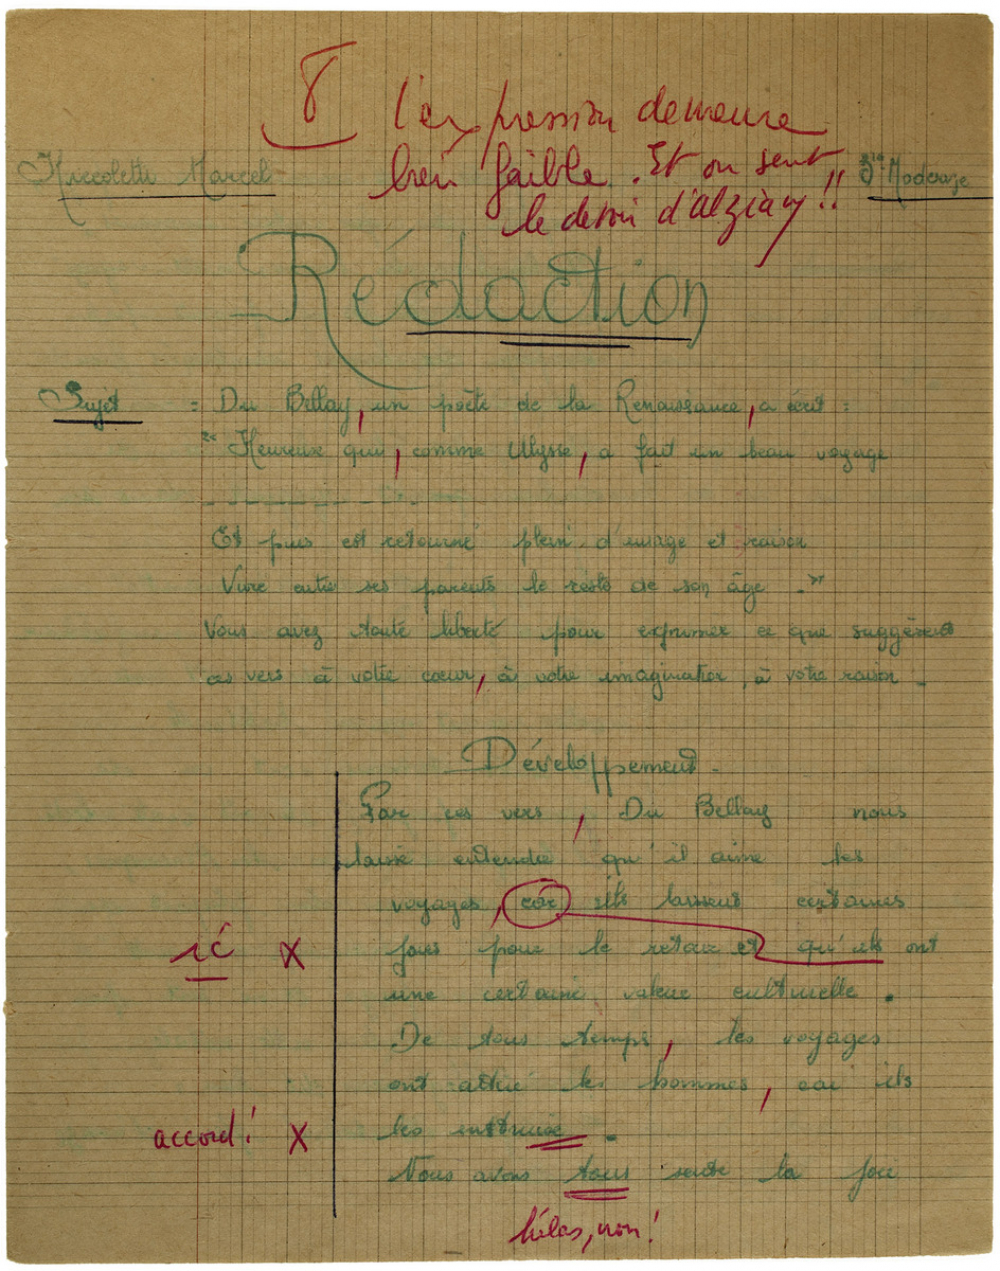 8 l'expression demeure
bien faible. Et on sent
le devoir d'Alziary !!
Niccoletti Marcel 3ie Moderne
Rédaction
Sujet : Du Bellay, un poète de la Renaissance, a écrit :
"Heureux qui, comme Ulysse, a fait un beau voyage
Et puis est retourné plein d'usage et raison
Vivre entre ses parents le reste de son âge."
Vous avez toute liberté pour exprimer ce que suggèrent
ces vers à votre cœur, à votre imagination, à votre raison.
Développement.
Par ces vers, Du Bellay nous
laisse entendre qu'il aime les
voyages, car ils laissent certaines
ré X joies pour le retour et qu'ils ont
une certaine valeur culturelle.
De tous temps, les voyages
ont attiré les hommes, car ils
accord! X les instruise.
Nous avons tous sentie la joie
hélas, non!